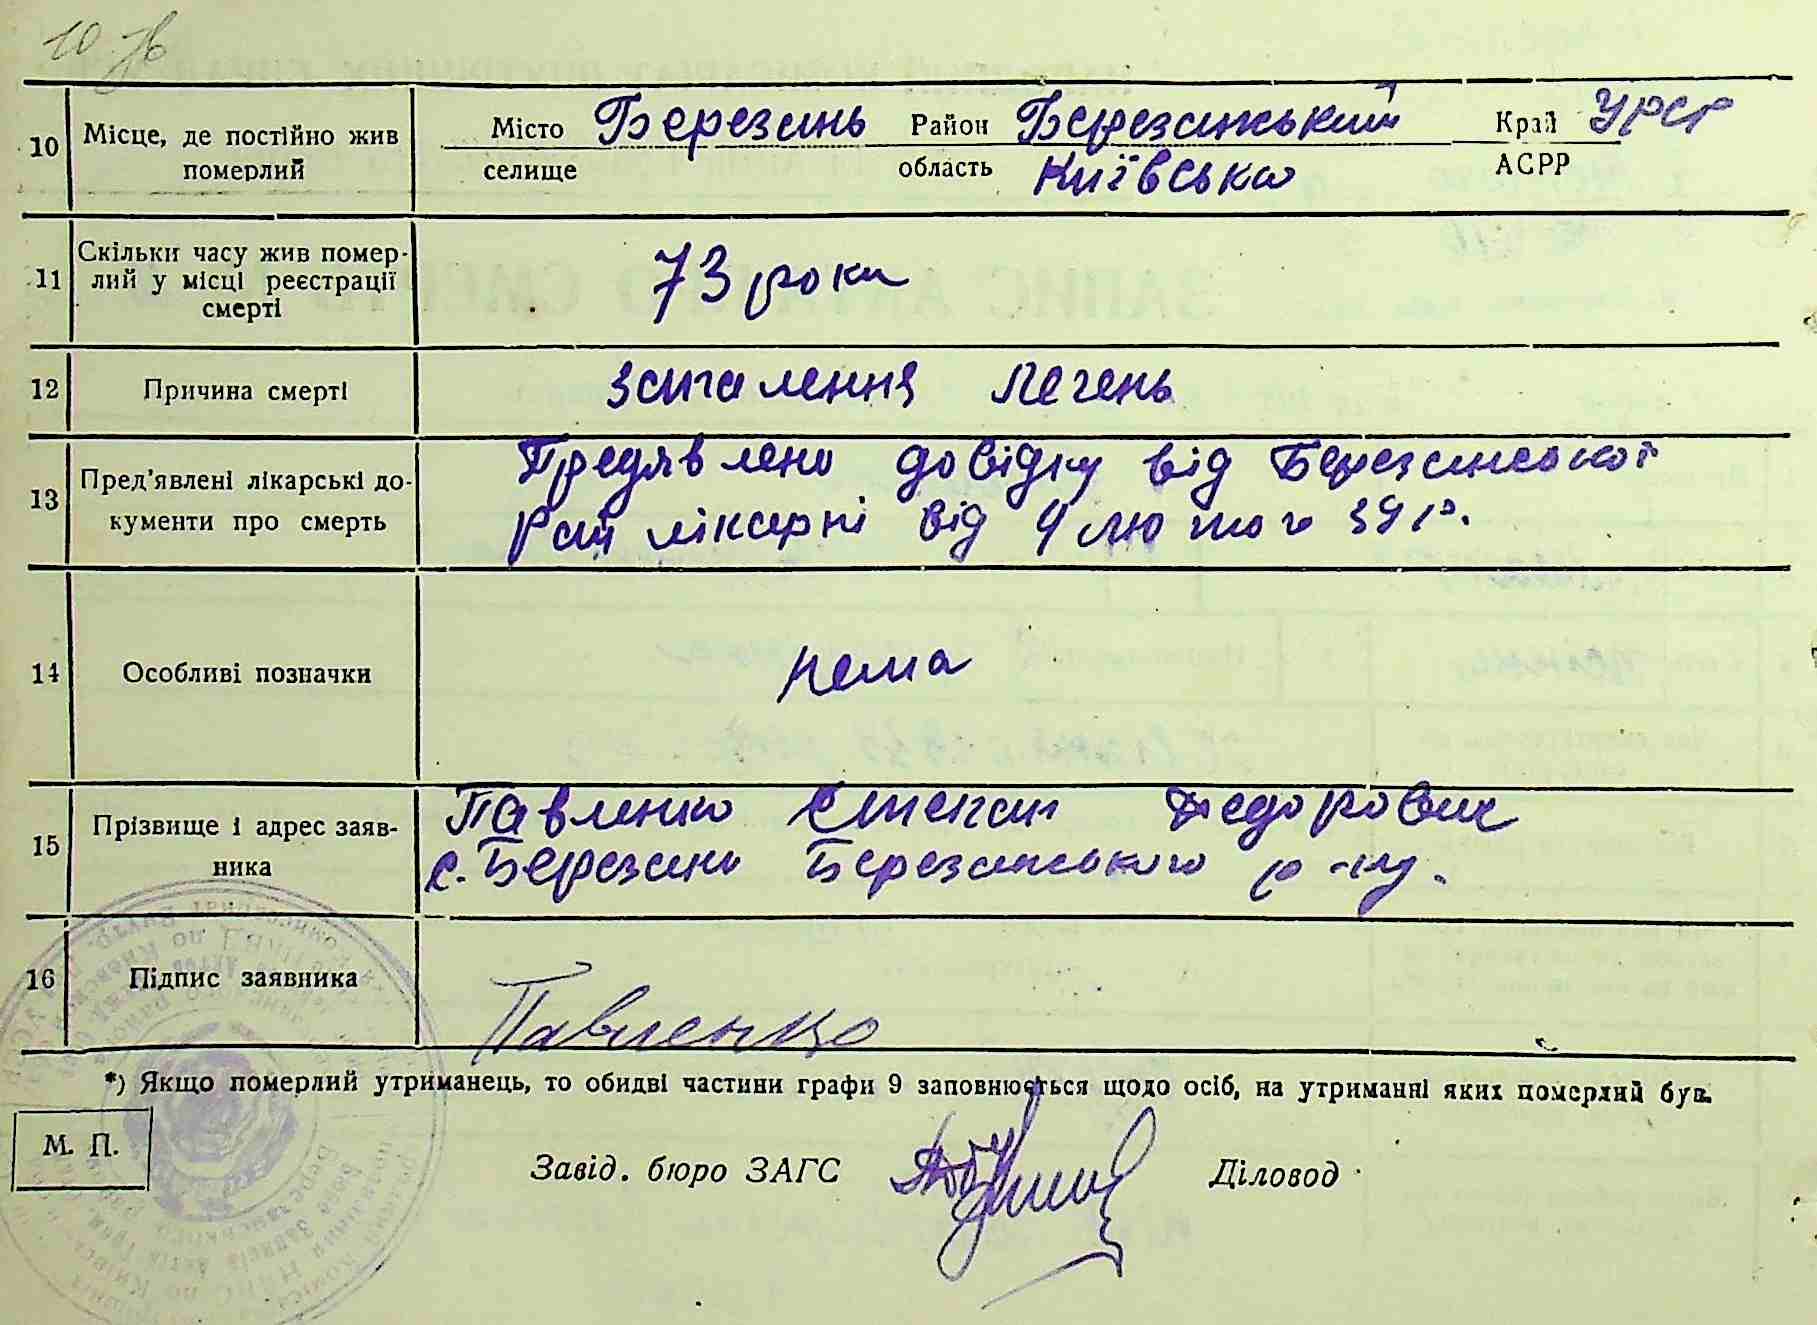 10
10 Місце, де постійно жив померлий Місто Березань Район Березанський Край УРСР
селище область Київська АСРР
11 Скільки часу жив помер-
лий у місці реєстрації
смерті
73 роки
12 Причина смерті запалення легень
13 Пред'явлені лікарські до-
кументи про смерть
Предявлено довідку від Березанської
Рай лікарні від 4 лютого 39 р.
14 Особливі позначки нема
15 Прізвище і адрес заяв-
ника
Павленко Степан Федорович
с. Березань Березанського р-ну.
16 Підпис заявника Павленко
*) Якщо померлий утриманець, то обидві частини графи 9 заповнюється щодо осіб, на утриманні яких померлий був.
М. П.
Завід. бюро ЗАГС Діловод